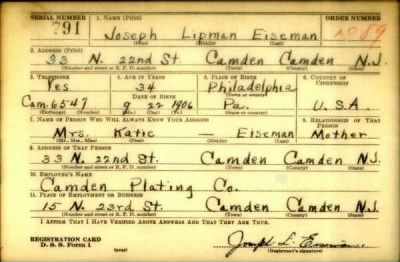 SERIAL NUMBER 1. NAME (Print) ORDER NUMBER
791 Joseph Lipman Eiseman
(First) (Middle) (Last)
2. ADDRESS (Print)
33 N. 22nd St. Camden Camden N.J.
(Number and street or R. F. D. number) (Town) (County) (State)
3. TELEPHONE 4. AGE IN YEARS 5. PLACE OF BIRTH 6. COUNTRY OF CITIZENSHIP
Yes 34 Philadelphia
DATE OF BIRTH (Town or county)
Cam. 6547 9 22 1906 Pa. U.S.A.
(Exchange) (Number) (Mo.) (Day) (Yr.) (State or country)
7. NAME OF PERSON WHO WILL ALWAYS KNOW YOUR ADDRESS 8. RELATIONSHIP OF THAT PERSON
Mrs. Katie — Eiseman Mother
(Mr., Mrs., Miss) (First) (Middle) (Last)
9. ADDRESS OF THAT PERSON
33 N. 22nd St. Camden Camden N.J.
(Number and street or R. F. D. number) (Town) (County) (State)
10. EMPLOYER'S NAME
Camden Plating Co.
11. PLACE OF EMPLOYMENT OR BUSINESS
15 N. 23rd St. Camden Camden N.J.
(Number and street or R. F. D. number) (Town) (County) (State)
I AFFIRM THAT I HAVE VERIFIED ABOVE ANSWERS AND THAT THEY ARE TRUE.
REGISTRATION CARD
D. S. S. Form 1 Joseph L. Eiseman
(Registrant's signature)